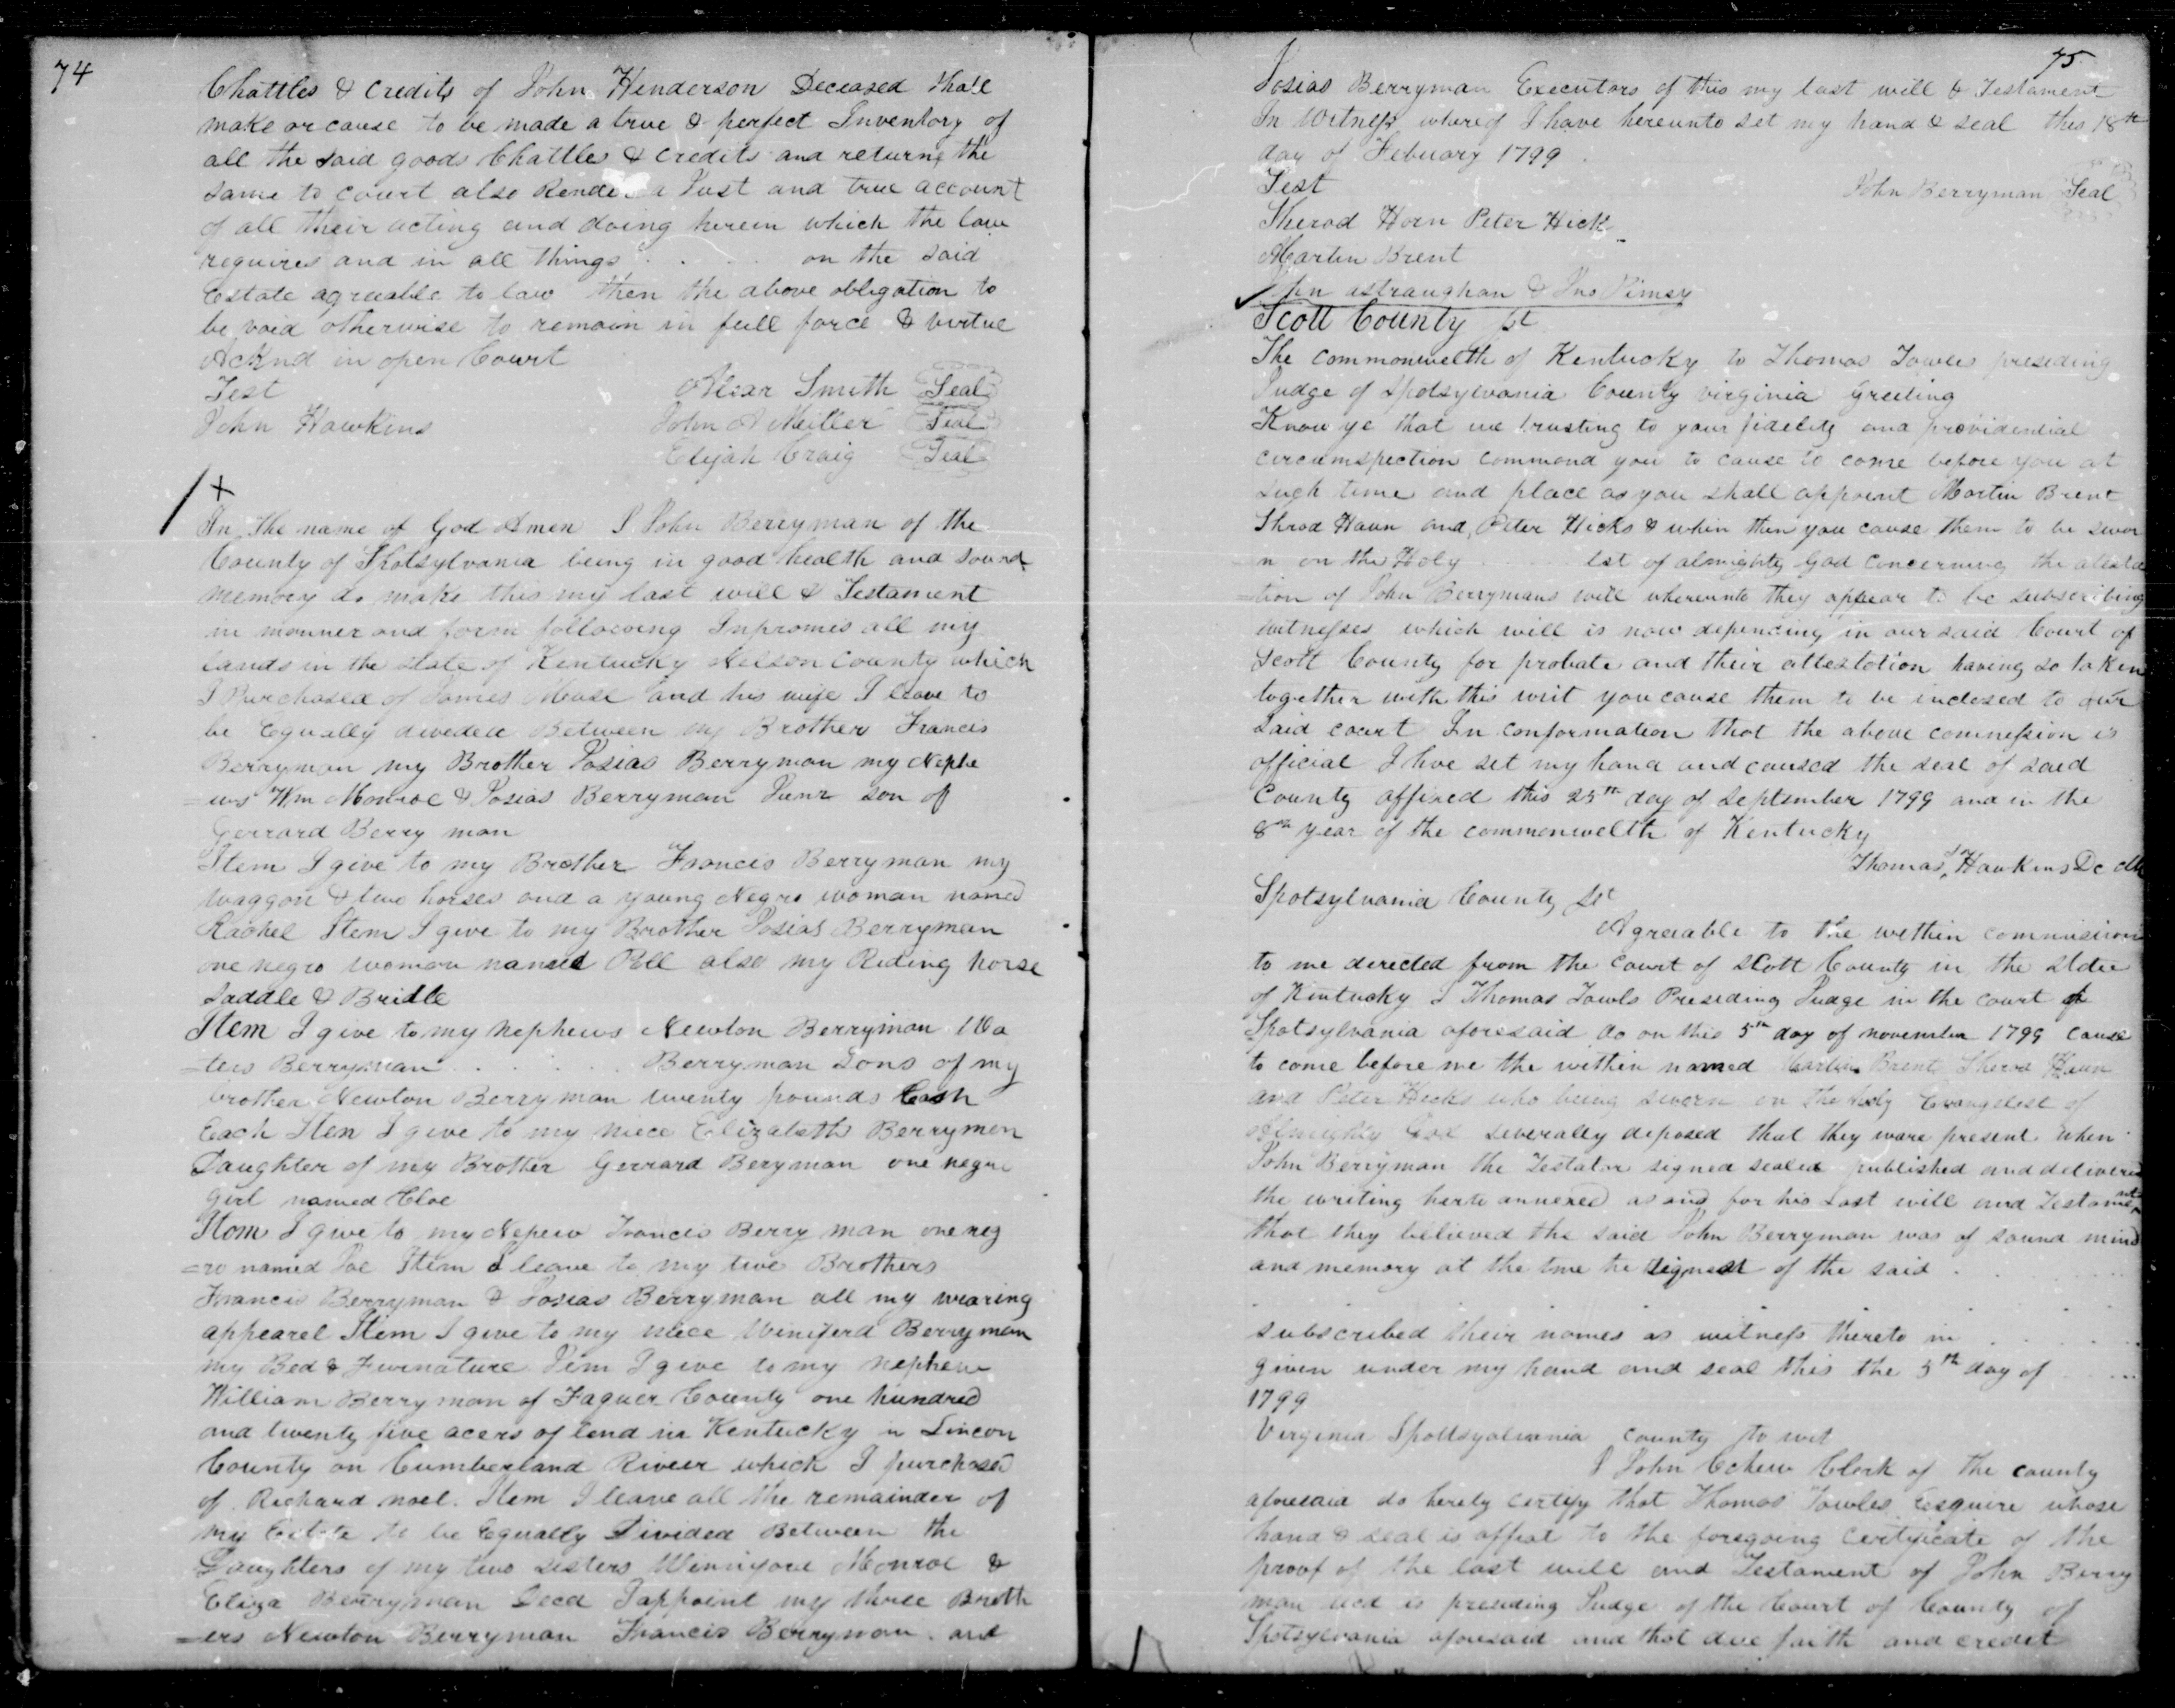 74
Chattles & Credits of John Henderson Deceased shall
make or cause to be made a true & perfect Inventory of
all the said goods Chattles & Credits and returne the
same to court also Rende a Just and true account
of all their acting and doing herein which the law
requires and in all things . . . . on the said
Estate agreeable to law then the above obligation to
be void otherwise to remain in full force & virtue
Acknd in open Court
Test Smith Seal
John Hawkins John A Meiller Seal
Elijah Craig Seal
+
In the name of God Amen I John Berryman of the
County of Spotsylvania being in good health and sound
memory do make this my last will & Testament
in manner and form following Inpromes all my
lands in the state of Kentucky Nelson County which
I Purchased of James Mase and his wife I leave to
be Equally diveded Between my Brother Francis
Berryman my Brother Josias Berryman my Nephe
=ws Wm Monroe & Josias Berryman Junr son of
Gerrard Berry man
Item I give to my Brother Francis Berryman my
waggon & two horses and a young Negro woman named
Rachel Item I give to my Brother Josias Berryman
one negro woman named Pell also my Riding horse
saddle & Bridle
Item I give to my Nephews Newton Berryman Wa
=ters Berryman . . . . . Berryman Sons of my
brother Newton Berryman twenty pounds Cash
Each Item I give to my niece Elizabeth Berrymen
Daughter of my Brother Gerrard Beryman one negro
girl named Cloe
Item I give to my Nepew Francis Berry man one neg
=ro named Joe Item I leave to my two Brothers
Francis Berryman & Josias Berryman all my wearing
appearel Item I give to my niece Winiferd Berryman
my Bed & Furnature Item I give to my nephew
William Berryman of Faquer County one hundred
and twenty five acers of lend in Kentucky in Lincon
County on Cumberland Riveer which I purchased
of Richard noel. Item I leave all the remainder of
my Estate to be Equally Divided Between the
Daughters of my two sisters Monroe &
Eliza Berryman Decd I appoint my three Broth
=ers Newton Berryman Francis Berryman and
75
Josias Berryman Executors of this my last will & Testament
In Witness whereof I have hereunto set my hand & seal this 18th
day of Febuary 1799
Test John Berryman Seal
Sherod Horn Peter Hick
Martin Brent
John astraughan & Jno
Scott County sst
The commonwelth of Kentucky to Thomas Towles presiding
Judge of Spotsylvania County virginia Greeting
Know ye that we trusting to your fidelity and providential
circumspection commond you to cause to come before you at
such time and place as you shall appoint Martin Brent
Shrod Haun and Peter Hicks & when then you cause them to be swor
n on the Holy . . . . lst of almighty God Concerning the attesta
=tion of John Berrymans will whereunto they appear to be subscribing
witnesses which will is now depencing in our said Court of
Scott County for probate and their attestation having so taken
together with this writ you cause them to be inclosed to our
said court In conformation that the above commession is
official I hve set my hand and caused the seal of said
County affixed this 25th day of September 1799 and in the
8th year of the commonwelth of Kentucky
Thomas Hawkins Dc
Spotsylvania County sst
Agreeable to the within commission
to me derected from the court of Scott County in the state
of Kentucky I Thomas Towls Presiding Judge in the court of
Spotsylvania aforesaid do on this 5th day of november 1799 cause
to come before me the within named Martin Brent Sherod Haun
and Peter Hicks who being sworn on the holy Evangelest of
almighty God severally deposed that they ware present when
John Berryman the Testator signed sealed published and delivered
the writing herto annexed as and for his Last will and Testament
that they believed the said John Berryman was of sound mind
and memory at the tme he signed of the said .
subscribed their names as witness thereto in . . . .
given under my hand and seal this the 5th day of . . . .
1799
Virginia Spottsyolvania county to wit
I John Clerk of the county
aforesaid do herely certify that Thomas Towles Esquire whose
hand & seal is affixt to the foregoing Certificate of the
proof of the last will and Testament of John Berry
man decd is presiding Judge of the Court of County of
Spotsylvania aforesaid and that due faith and credit